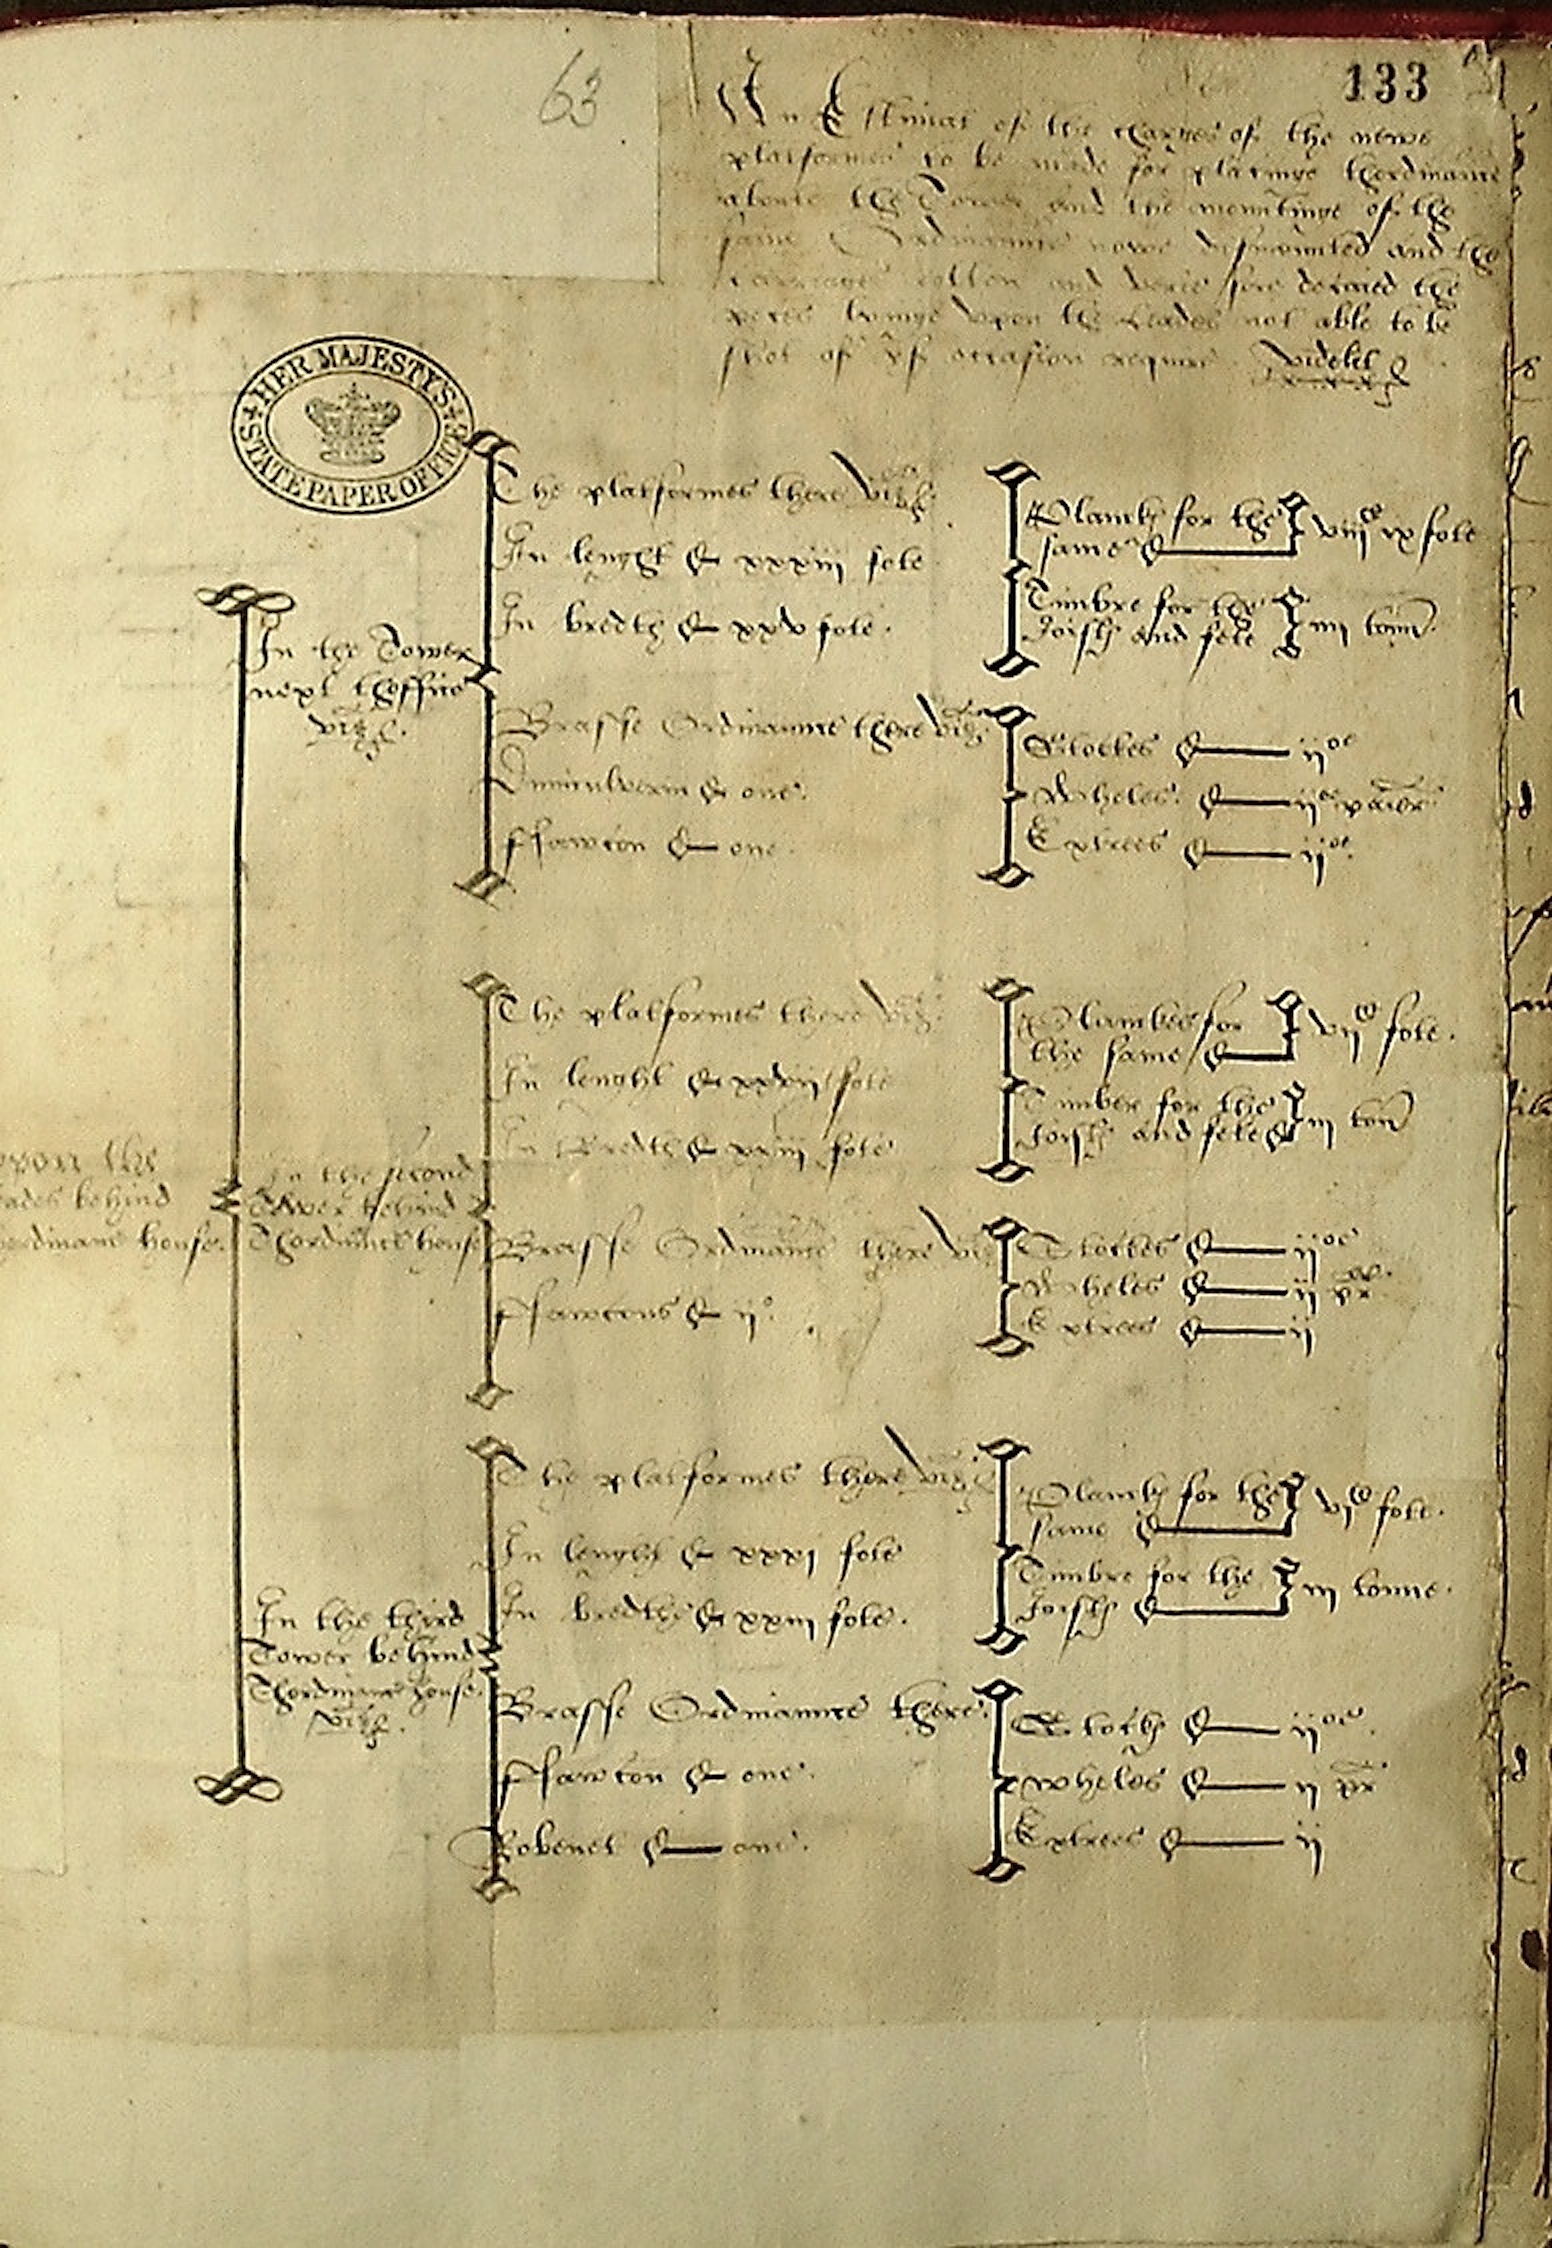 63
133
An Estimat of the charges of the newe
platformes to be made for placinge thordinance
aboute the Tower and the mountinge of the
same Ordinaunce nowe dismounted and the
carriages rotten and verie sore decaied the
peces lyinge vpon the Leades not able to be
shot of yf occasion require videlet
HER MAJESTY'S
STATE PAPER OFFICE
In the Tower
next thoffice
vizt.
The platformes there vizt
In lenght xxxiii fote
In bredth xxv fote.
Planck for the
same viiiC xx fote
Timbre for the
Joistes and fete iii tonn
Brasse Ordinaunce there vizt
Diminiculverin one.
ffawcon one.
Stockes iioe
Wheles. iioe paier
Extrees iioe.
vpon the
Leades behind
thordinanc house.
In the second
Tower behind
Thordinnce house
The platformes there vizt
In lenght fote
In Bredth xxiii fote
Planckes for
the same viiC fote.
Timber for the
Joistes and fete iii ton
Brasse Ordinaunce there vizt
ffawcons iio.
Stockes iioe
Wheles ii pr.
Extrees ii
In the third
Tower behind
Thordinanc house.
vizt.
The platformes there vizt
In lenght xxxi fote
In bredthe xxiii fote.
Planck for the
same viC fote.
Timbre for the
Joistes iii tonne.
Brasse Ordinaunce there.
ffawcon one.
Robenet one.
Stockes iioe.
Wheles ii pr
Extrees ii